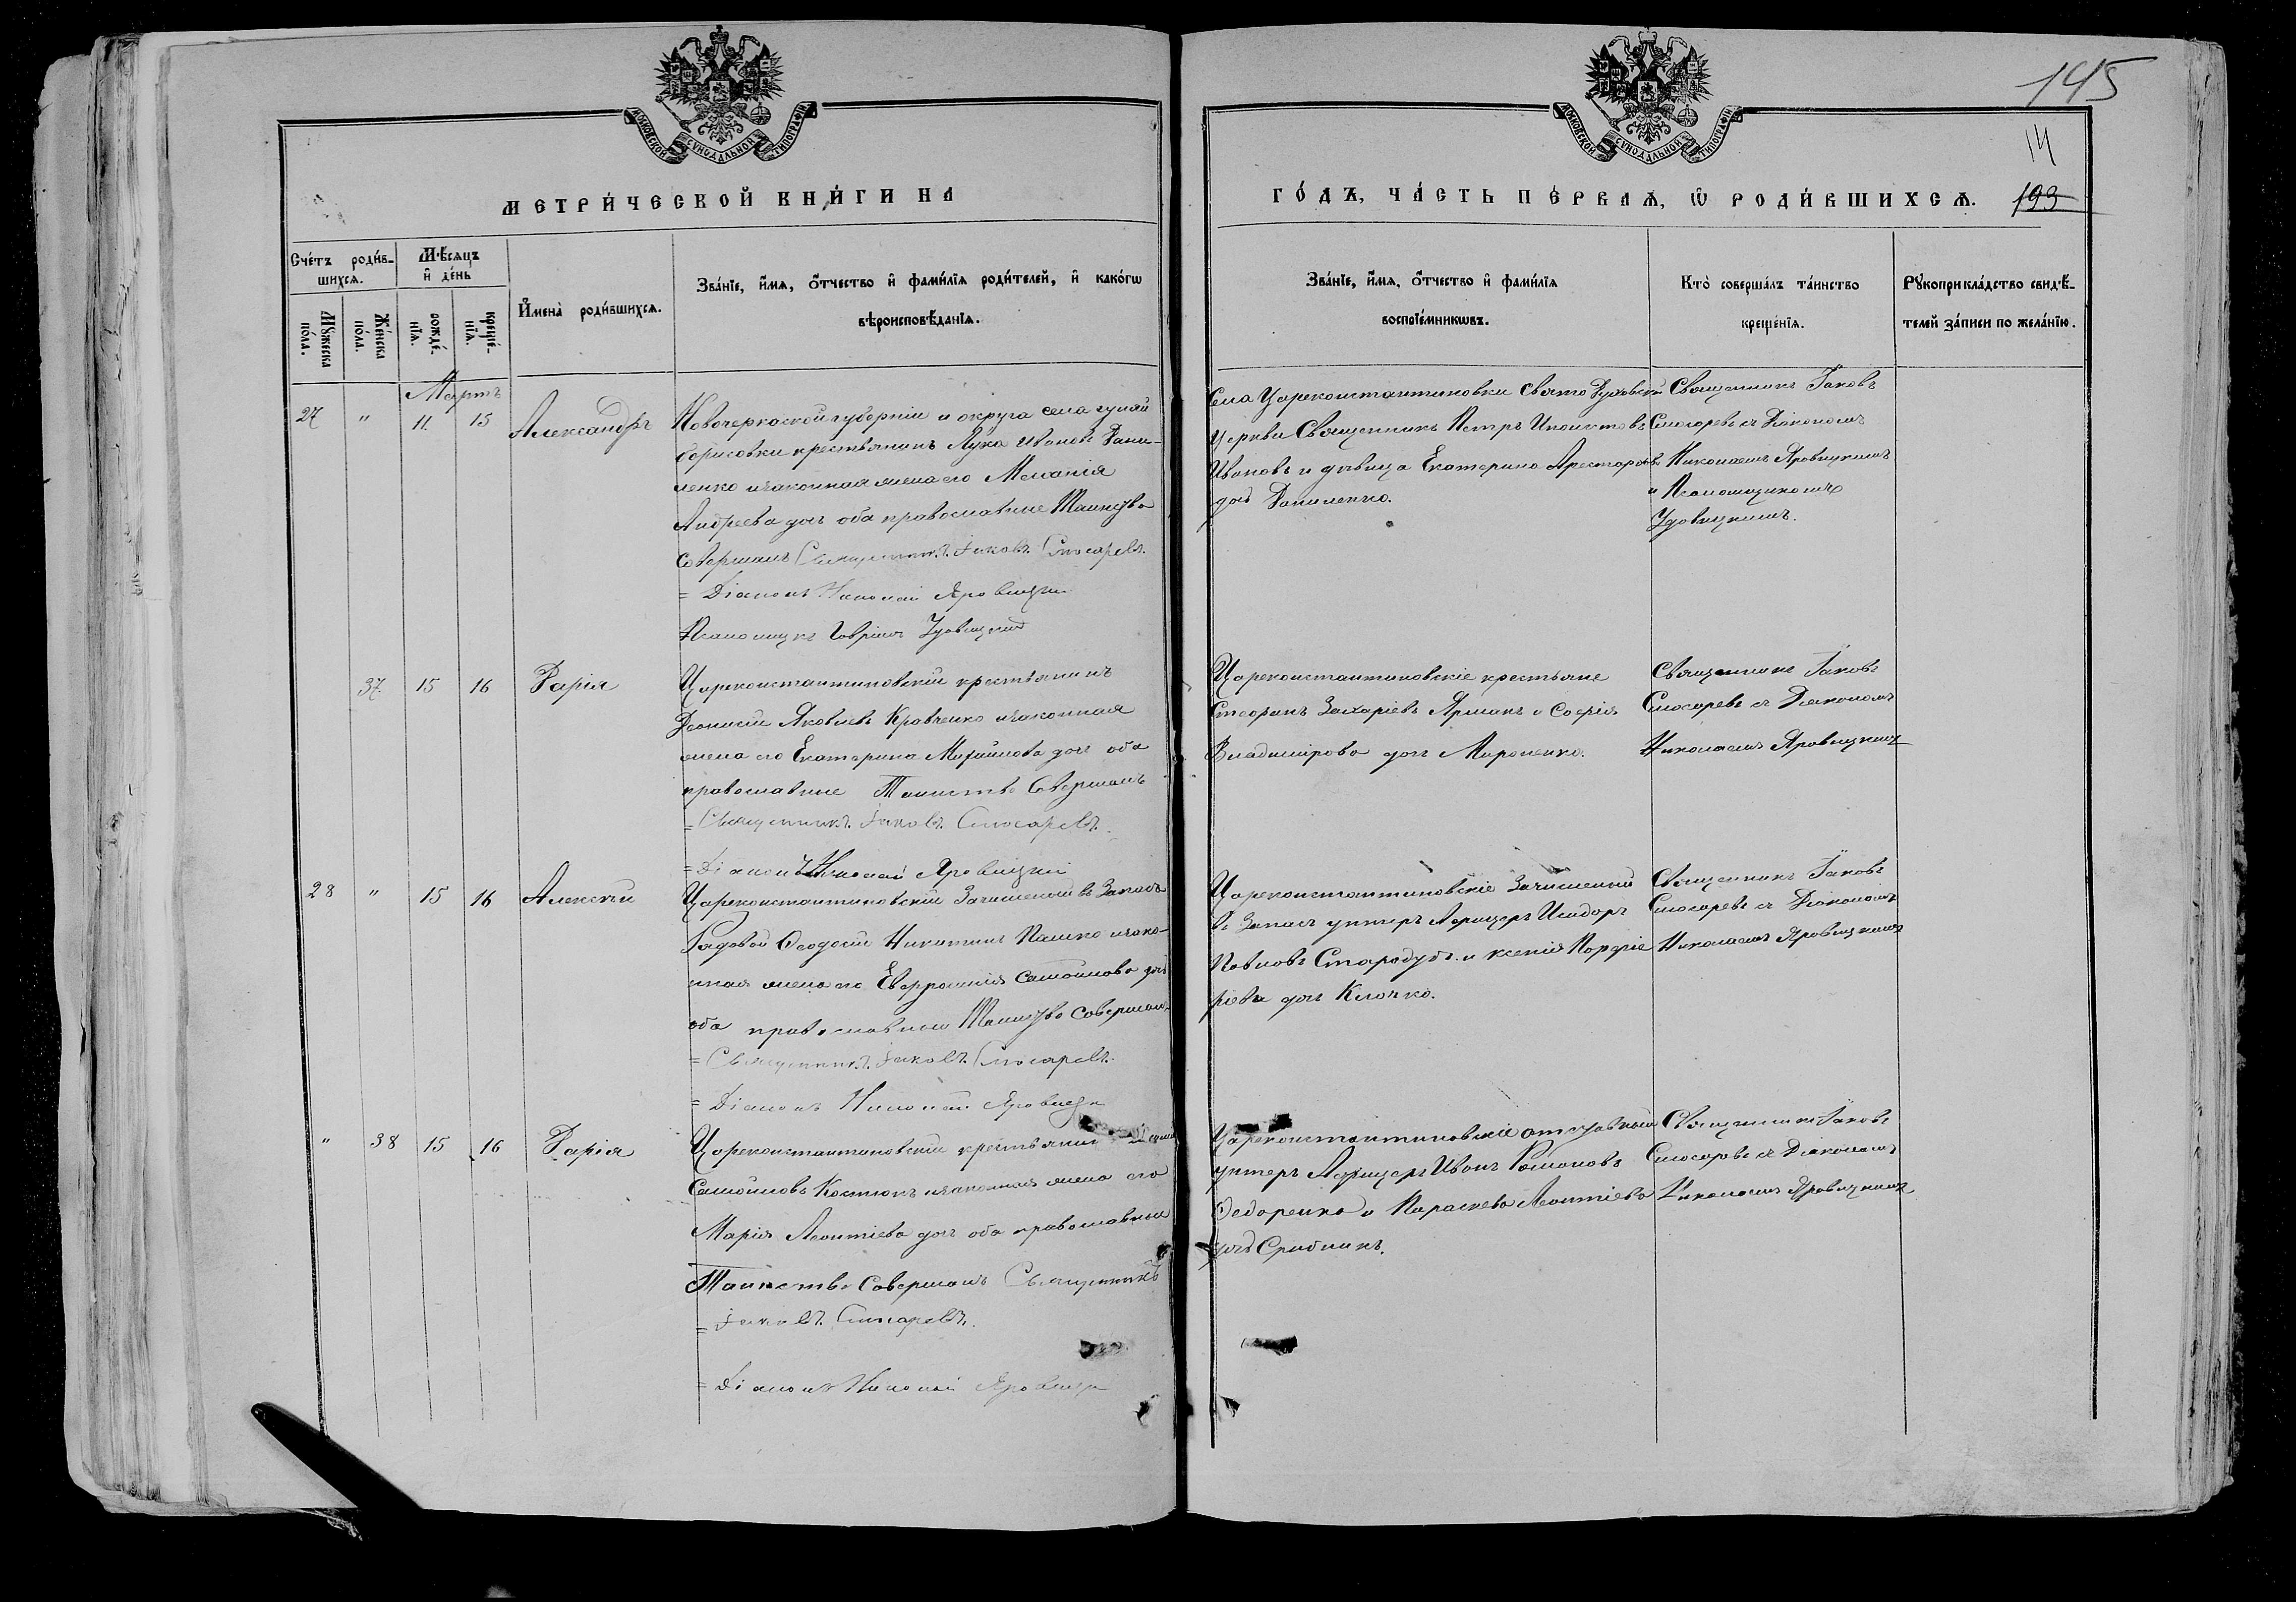 145
14
193
МОСКОВСКОЙ СѴНОДАЛЬНОЙ ТИПОГРАФІИ
МОСКОВСКОЙ СѴНОДАЛЬНОЙ ТИПОГРАФІИ
МЕТРИ́ЧЕСКОЙ КНИ́ГИ НА
ГО́ДЪ, ЧА́СТЬ ПЕ́РВАѦ, Ѡ҆ РОДИ́ВШИХСѦ.
Сче́тъ роди́в-
шихсѧ.
Мѣ́сѧцъ
и҆ де́нь
Мꙋ́жеска
по́ла.
Же́нска
по́ла.
рожде́-
нїѧ.
креще́-
нїѧ.
И҆мена̀ роди́вшихсѧ.
Зва́нїе, и҆́мѧ, ѻ҆́тчество и҆ фами́лїѧ роди́телей, и҆ како́гѡ
вѣроисповѣ́данїѧ.
Зва́нїе, и҆́мѧ, ѻ҆́тчество и҆ фами́лїѧ
воспрїе́мникѡвъ.
Кто̀ соверша́лъ та́инство
креще́нїѧ.
Рꙋкоприкла́дство свидѣ́-
телей за́писи по жела́нїю.
Мартъ
27 " 11. 15 Александръ
Новочеркаской губерніи и округа села
борисовки крестьянинъ Лука Ивановъ Дани-
ленко и законная жена его Меланія
Андреева дочь оба православные Таинство
Совершалъ Священникъ Іаковъ Слюсаревъ.
= Діаконъ Николай Яровицкій
Псаломщикъ Гавріилъ Удовицкій
Села Цареконстантиновки Свято Духовской
Церкви Священникъ Петръ
Ивановъ и девица Екатерина
дочь Даниленко.
Священникъ Іаковъ
Слюсаревъ съ Діакономъ
Николаемъ Яровицкимъ
и Псаломщикомъ
Удовицкимъ.
37 15 16 Дарія
Цареконстантиновскій крестьянинъ
Деонисій Яковлевъ Кравченко и законная
жена его Екатерина Михайлова дочь оба
православные Таинство Совершалъ
= Священникъ Іаковъ Слюсаревъ.
= Діаконъ Николай Яровицкій
Цареконстантиновскіе крестьяне
Стефанъ Захаріевъ Ярмакъ и Софія
Владимірова дочь Мироненко.
Священникъ Іаковъ
Слюсаревъ съ Діакономъ
Николаемъ Яровицкимъ
28 " 15 16 Алексѣй
Цареконстантиновскій Зачисленый въ Запасъ
Рядовой Феодосій Никитинъ Пашко и зако-
нная жена его Евфросинія Самойлова дочь
оба православные Таинство Совершалъ
= Священникъ Іаковъ Слюсаревъ.
= Діаконъ Николай Яровицкій
Цареконстантиновскіе Зачисленый
въ Запасъ унтеръ Афицеръ Исидоръ
Павловъ Стародубъ и ксенія Порфи
ріева дочь Клочко.
Священникъ Іаковъ
Слюсаревъ съ Діакономъ
Николаемъ Яровицкимъ
" 38 15 16 Дарія
Цареконстантиновскій крестьянинъ
Самойловъ Костюкъ и законная жена его
Марія Леонтіева дочь оба православные
Таинство Совершалъ Священникъ
= Іаковъ Слюсаревъ.
= Діаконъ Николай Яровицкій
Цареконстантиновскіе отставный
унтеръ Афицеръ Иванъ Романовъ
Федоренко и Параскева Леонтіева
дочь Срибникъ.
Священникъ Іаковъ
Слюсаревъ съ Діакономъ
Николаемъ Яровицкимъ